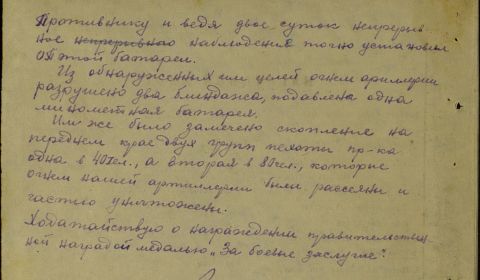 Противнику и ведя двое суток непрерыв-
ное непрерывно наблюдения точно установил
ОП этой батареи.
Из обнаруженных им целей огнем артиллерии
разрушено два блиндажа, подавлена одна
минометная батарея.
Им же было замечено скопление на
переднем крае двух групп пехоты пр-ка
одна в 40 чел., а вторая в 80 чел., которые
огнем нашей артиллерии были рассеяны и
частью уничтожены.
Ходатайствую о награждении правительствен-
ной наградой медалью „За боевые заслуги".